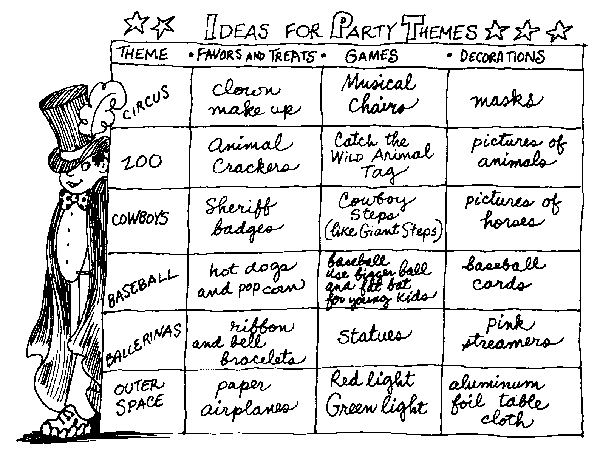 IDEAS FOR PARTY THEMES
THEME • FAVORS AND TREATS • GAMES • DECORATIONS
CIRCUS
clown
make up
Musical
Chairs
masks
ZOO
Animal
Crackers
Catch the
Wild Animal
Tag
pictures of
animals
COWBOYS
Sheriff
badges
Cowboy
Steps
(like Giant Steps)
pictures of
horses
BASEBALL
hot dogs
and popcorn
baseball
use bigger ball
and fat bat
for young kids
baseball
cards
BALLERINAS
ribbon
and bell
bracelets
Statues
pink
streamers
OUTER
SPACE
paper
airplanes
Red light
Green light
aluminum
foil table
cloth